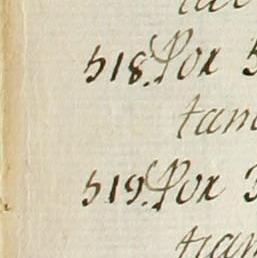 518. Por 5
tam
519. Por 3
tram